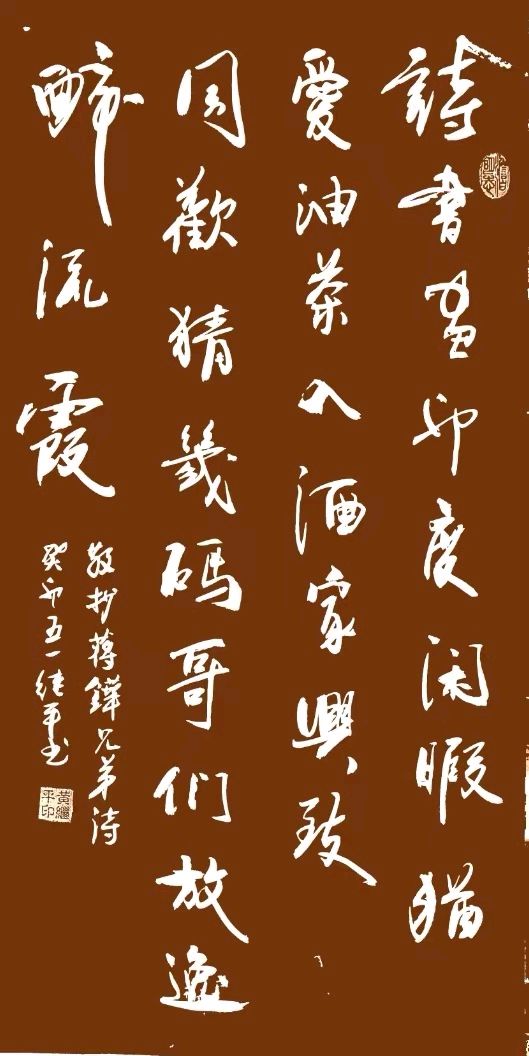 詩書畫印度闲暇猶
愛油茶入酒家興致
同歡猜幾碼哥們放逸
醉流霞
敬抄蔣鏵兄弟诗
癸卯五一继平书
黃繼平印